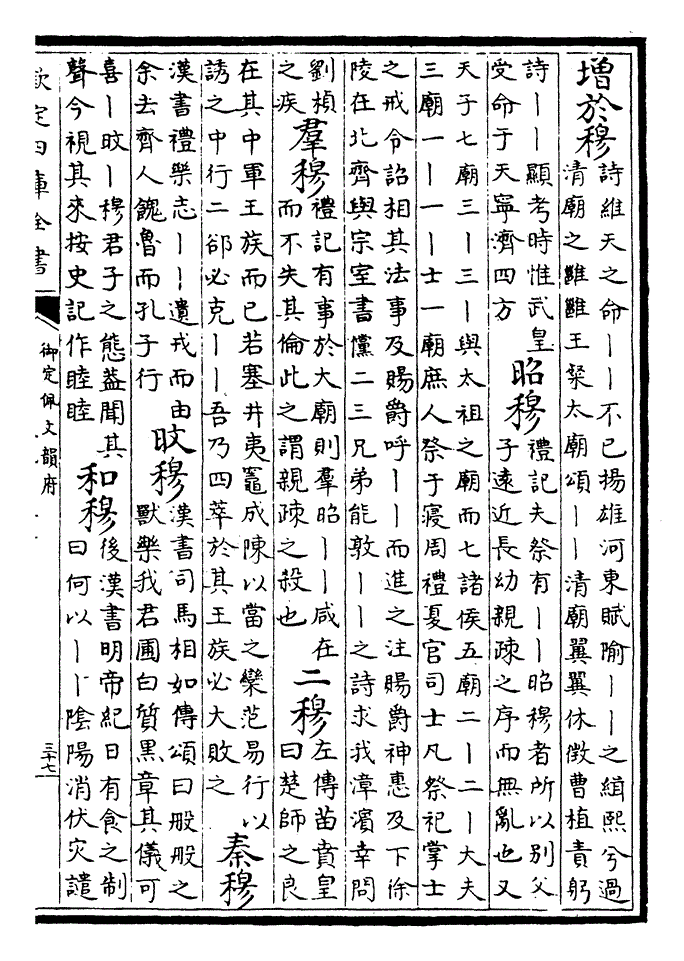 增於穆
詩維天之命丨丨不已揚雄河東賦隃丨丨之緝熙兮過
清廟之雝雝王粲太廟頌丨丨清廟翼翼休徴曹植責躬
詩丨丨顯考時惟武皇
受命于天寧濟四方
昭穆
禮記夫祭有丨丨昭穆者所以别父
子遠近長幼親疎之序而無亂也又
天子七廟三丨三丨與太祖之廟而七諸侯五廟二丨二丨大夫
三廟一丨一丨士一廟庶人祭于寢周禮夏官司士凡祭祀掌士
之戒令詔相其法事及賜爵呼丨丨而進之注賜爵神惠及下徐
陵在北齊與宗室書儻二三兄弟能敦丨丨之詩求我漳濱幸問
劉楨
之疾
羣穆
禮記有事於大廟則羣昭丨丨咸在
而不失其倫此之謂親疎之殺也
二穆
左傳苗賁皇
曰楚師之良
在其中軍王族而已若塞井夷竈成陳以當之欒范易行以
誘之中行二郤必克丨丨吾乃四萃於其王族必大敗之
秦穆
漢書禮樂志丨丨遺戎而由
余去齊人餽魯而孔子行
旼穆
漢書司馬相如傳頌曰般般之
獸樂我君圃白質黑章其儀可
喜丨旼丨穆君子之態葢聞其
聲今視其來按史記作睦睦
和穆
後漢書明帝紀日有食之制
曰何以丨丨陰陽消伏災譴
欽定四庫全書
御定佩文韻府
三十七